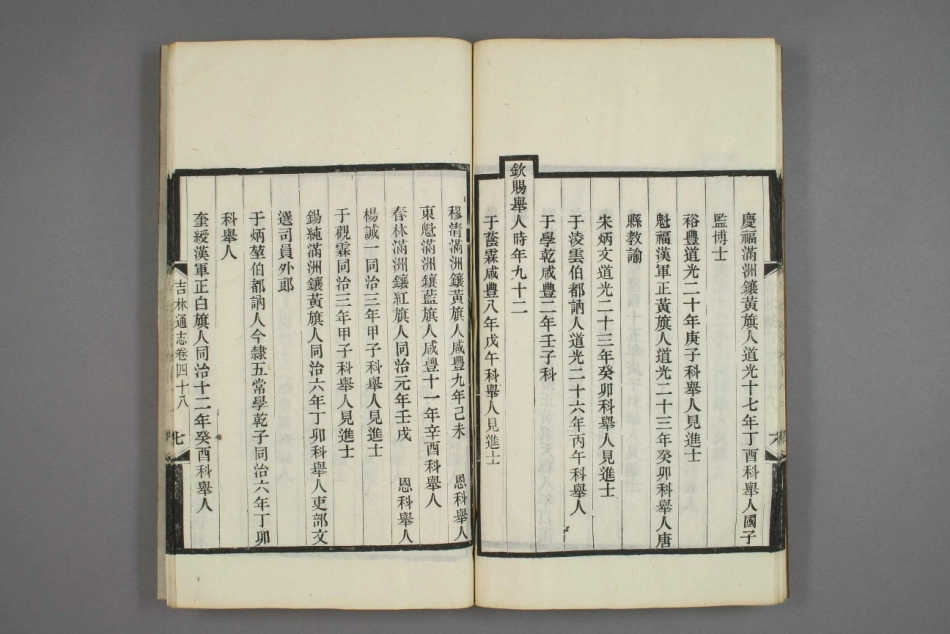 慶福滿洲鑲黃旗人道光十七年丁酉科舉人國子
監博士
裕豐道光二十年庚子科舉人見進士
魁福漢軍正黃旗人道光二十三年癸卯科舉人唐
縣教諭
朱炳文道光二十三年癸卯科舉人見進士
于淩雲伯都訥人道光二十六年丙午科舉人
于學乾咸豐二年壬子科
欽賜舉人時年九十二
于蔭霖咸豐八年戊午科舉人見進士
穆清滿洲鑲黃旗人咸豐九年己未 恩科舉人
東魁滿洲鑲藍旗人咸豐十一年辛酉科舉人
春林滿洲鑲紅旗人同治元年壬戌 恩科舉人
楊誠一同治三年甲子科舉人見進士
于觀霖同治三年甲子科舉人見進士
錫純滿洲鑲黃旗人同治六年丁卯科舉人吏部文
選司員外郎
于炳堃伯都訥人今隸五常學乾子同治六年丁卯
科舉人
奎綬漢軍正白旗人同治十二年癸酉科舉人
吉林通志卷四十八 七